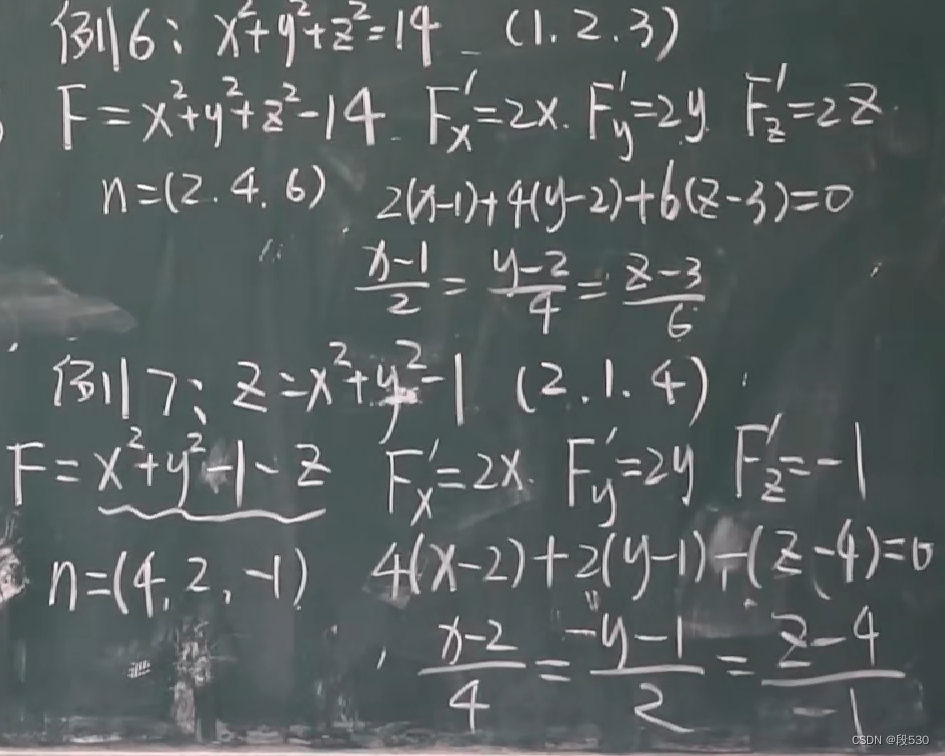 例6: x²+y²+z²=14 (1.2.3)
F=x²+y²+z²-14 F'x=2x. F'y=2y. F'z=2z.
n=(2.4.6) 2(x-1)+4(y-2)+6(z-3)=0
(x-1)/2=(y-2)/4=(z-3)/6
例7: z=x²+y²-1 (2.1.4)
F=x²+y²-1-z F'x=2x. F'y=2y F'z=-1
n=(4,2,-1) 4(x-2)+2(y-1)-(z-4)=0
(x-2)/4=(-y-1)/2=(z-4)/-1
CSDN @段530